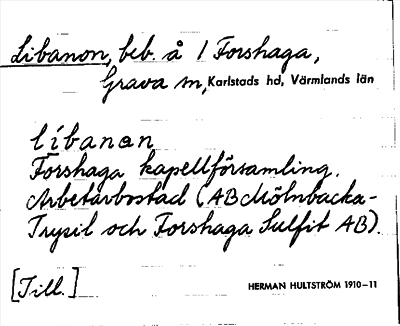 Libanon, beb. å 1 Forshaga,
Grava sn, Karlstads hd, Värmlands län
libanan
Forshaga kapellförsamling.
Arbetarbostad (AB Mölnbacka-
Trysil och Forshaga Sulfit AB).
[Till.]
HERMAN HULTSTRÖM 1910–11